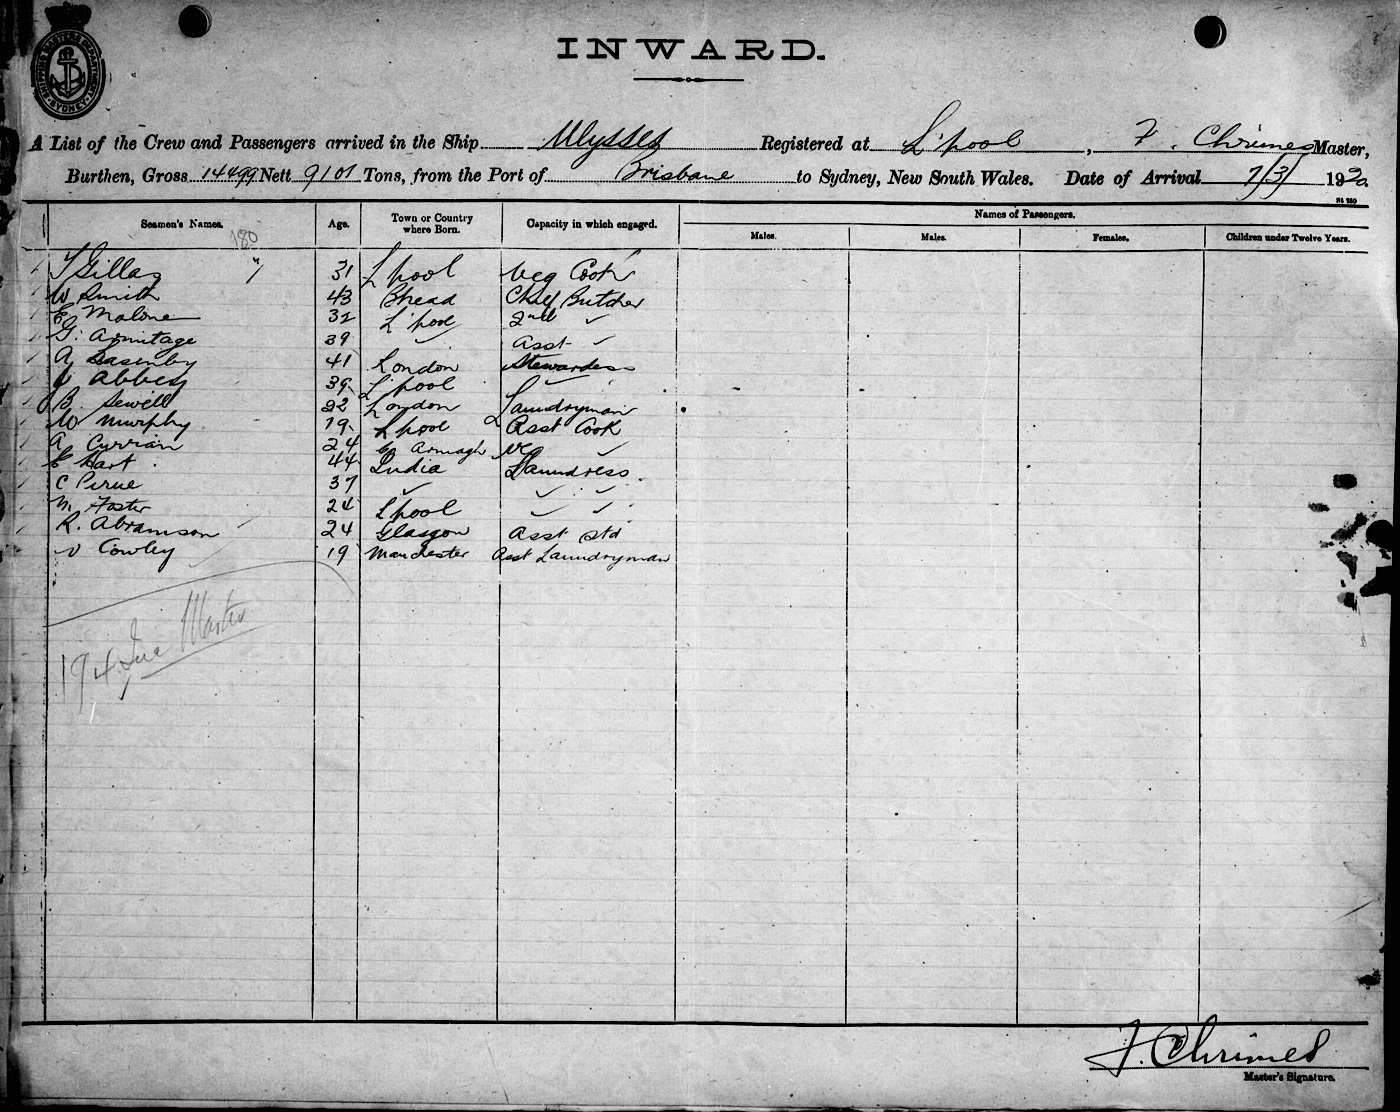 SHIPPING MASTERS DEPARTMENT SYDNEY
INWARD.
A List of the Crew and Passengers arrived in the Ship Ulysses Registered at L'pool, F. Chrimes Master,
Burthen, Gross 14499 Nett 9101 Tons, from the Port of Brisbane to Sydney, New South Wales. Date of Arrival 7/3/ 1920
Seamen's Names. Age. Town or Country where Born. Capacity in which engaged. Names of Passengers.
Males. Males. Females. Children under Twelve Years.
180
T Gillas 31 L'pool Veg Cook
W Smith 43 Bhead Chief Butcher
E Malone 32 L'pool 2nd ✓
G. Armitage 39 ✓ Asst ✓
A 41 London Stewardess
Abbey 39 L'pool ✓
B. Sewell 22 London Laundryman
W Murphy 19 L'pool Asst Cook
A Curran 24 Co Armagh ✓
E Hart 44 India Laundress
C Pirue 37 ✓ ✓ ✓
M. Foster 24 L'pool ✓ ✓
R. Abramson 24 Glasgow Asst Std
V Cowley 19 Manchester Asst Laundryman
194 Inc Master
F. Chrimes
Master's Signature.